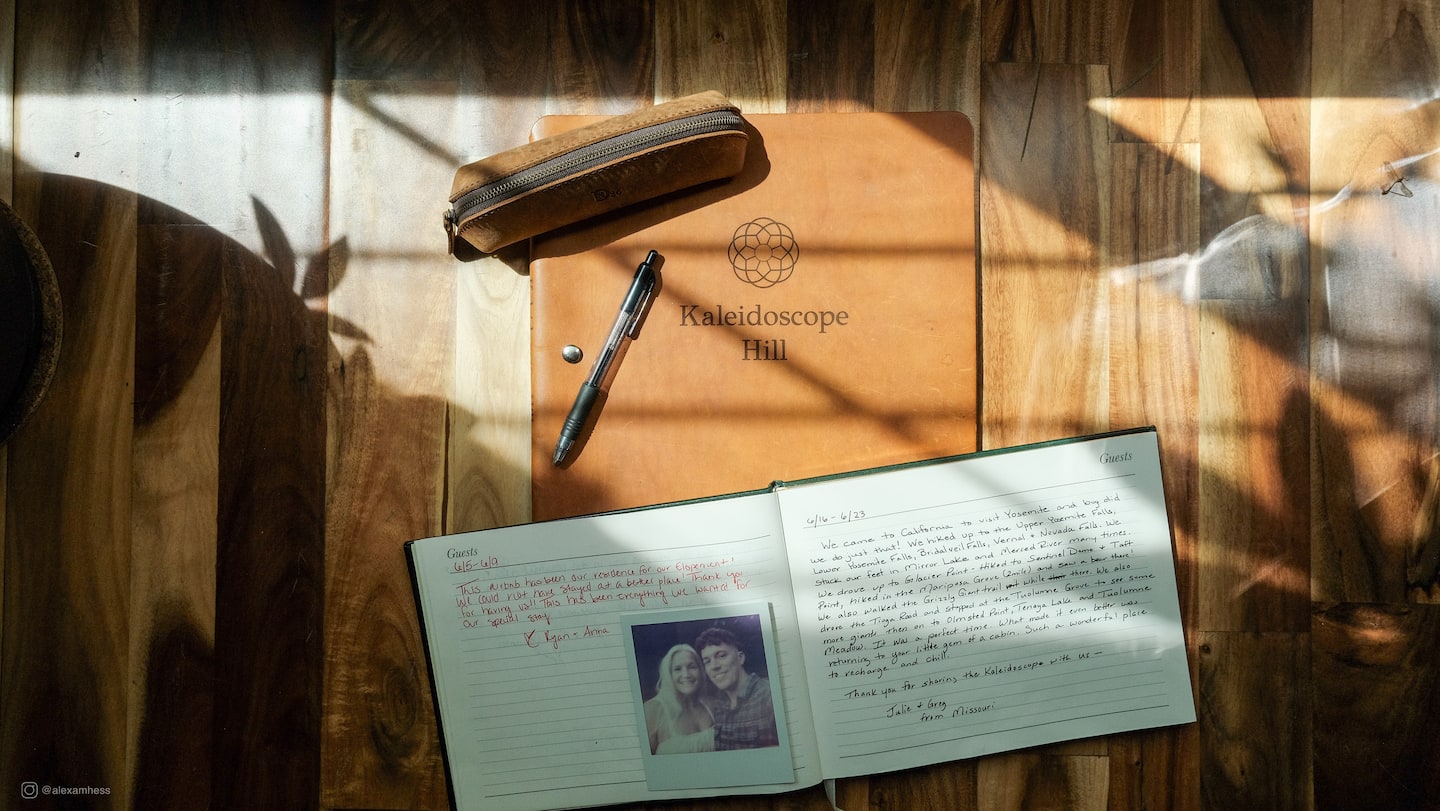 Kaleidoscope
Hill
Guests
6/5-6/9
This Airbnb has been our residence for our Elopement!
We could not have stayed at a better place! Thank you
for having us!! This has been everything we wanted for
our special stay.
Ryan + Anna
Guests
6/16 - 6/23
We came to California to visit Yosemite and boy did
we do just that! We hiked up to the Upper Yosemite Falls,
Lower Yosemite Falls, Bridalveil Falls, Vernal + Nevada Falls. We
stuck our feet in Mirror Lake and Merced River many times.
We drove up to Glacier Point - Hiked to Sentinel Dome + Taft
Point, Hiked in the Mariposa Grove (2mile) and saw a bear there!
We also walked the Grizzly Giant trail while there. We also
drove the Tioga Road and stopped at the Tuolumne Grove to see some
more giants then on to Olmsted Point, Tenaya Lake and Tuolumne
Meadow. It was a perfect time. What made it even better was
returning to your little gem of a cabin. Such a wonderful place
to recharge and chill.
Thank you for sharing the Kaleidoscope with us -
Julie + Greg
from Missouri
@alexamhess